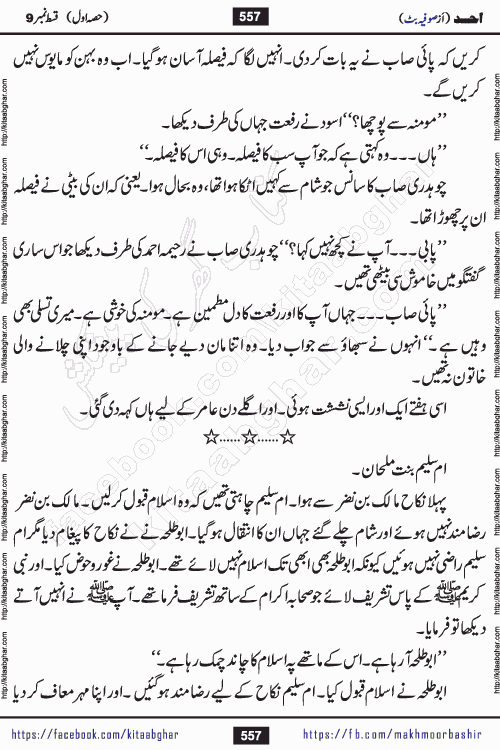 احمد (از صوفیہ بٹ)
557
(حصہ اول) قسط نمبر 9
کریں کہ پائی صاب نے یہ بات کر دی۔ انہیں لگا کہ فیصلہ آسان ہو گیا۔ اب وہ بہن کو مایوس نہیں
کریں گے۔
”مومنہ سے پوچھا؟“ اسود نے رفعت جہاں کی طرف دیکھا۔
”ہاں ۔۔۔ وہ کہتی ہے کہ جو آپ سب کا فیصلہ۔ وہی اس کا فیصلہ۔“
چوہدری صاب کا سانس جو شام سے کہیں اٹکا ہوا تھا، وہ بحال ہوا۔ یعنی کہ ان کی بیٹی نے فیصلہ
ان پر چھوڑا تھا۔
”پابی ۔۔۔ آپ نے کچھ نہیں کہا؟“ چوہدری صاب نے رحیمہ احمد کی طرف دیکھا جو اس ساری
گفتگو میں خاموش سی بیٹھی تھیں۔
”پائی صاب ۔۔۔ جہاں آپ کا اور رفعت کا دل مطمئن ہے۔ مومنہ کی خوشی ہے۔ میری تسلی بھی
وہیں ہے۔“ انہوں نے سبھاؤ سے جواب دیا۔ وہ اتنا مان دیے جانے کے باوجود اپنی چلانے والی
خاتون نہ تھیں۔
اسی ہفتے ایک اور ایسی نشست ہوئی۔ اور اگلے دن عامر کے لیے ہاں کہہ دی گئی۔
☆......☆......☆
ام سلیم بنت ملحان۔
پہلا نکاح مالک بن نضر سے ہوا۔ ام سلیم چاہتی تھیں کہ وہ اسلام قبول کر لیں۔ مالک بن نضر
رضامند نہیں ہوئے اور شام چلے گئے جہاں ان کا انتقال ہو گیا۔ ابو طلحہ نے نے نکاح کا پیغام دیا مگر ام
سلیم راضی نہیں ہوئیں کیونکہ ابو طلحہ بھی ابھی تک اسلام نہیں لائے تھے۔ ابو طلحہ نے غور و حوض کیا۔ اور نبی
کریم ﷺ کے پاس تشریف لائے جو صحابہ اکرام کے ساتھ تشریف فرما تھے۔ آپ ﷺ نے انہیں آتے
دیکھا تو فرمایا۔
”ابو طلحہ آ رہا ہے۔ اس کے ماتھے پہ اسلام کا چاند چمک رہا ہے۔“
ابو طلحہ نے اسلام قبول کیا۔ ام سلیم نکاح کے لیے رضامند ہو گئیں۔ اور اپنا مہر معاف کر دیا
https://facebook.com/kitaabghar
557
https://fb.com/makhmoorbashir
http://kitaabghar.com
http://kitaabghar.com
http://kitaabghar.com
http://kitaabghar.com
http://kitaabghar.com
http://kitaabghar.com
http://kitaabghar.com
http://kitaabghar.com